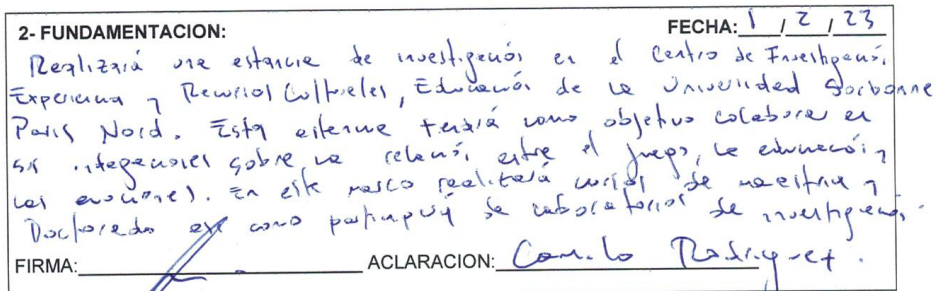 2- FUNDAMENTACION: FECHA: 1 / 2 / 23
Realizará una estancia de investigación en el Centro de Investigación,
Experiencia y Recursos Culturales, Educación de la Universidad Sorbonne
Paris Nord. Esta estancia tendrá como objetivo colaborar en
sobre la relación entre el juego, la educación y
las emociones. En este marco realizará cursos de maestría y
Doctorado como participará de laboratorios de investigación.
FIRMA: ACLARACION: Camilo Rodriguez.